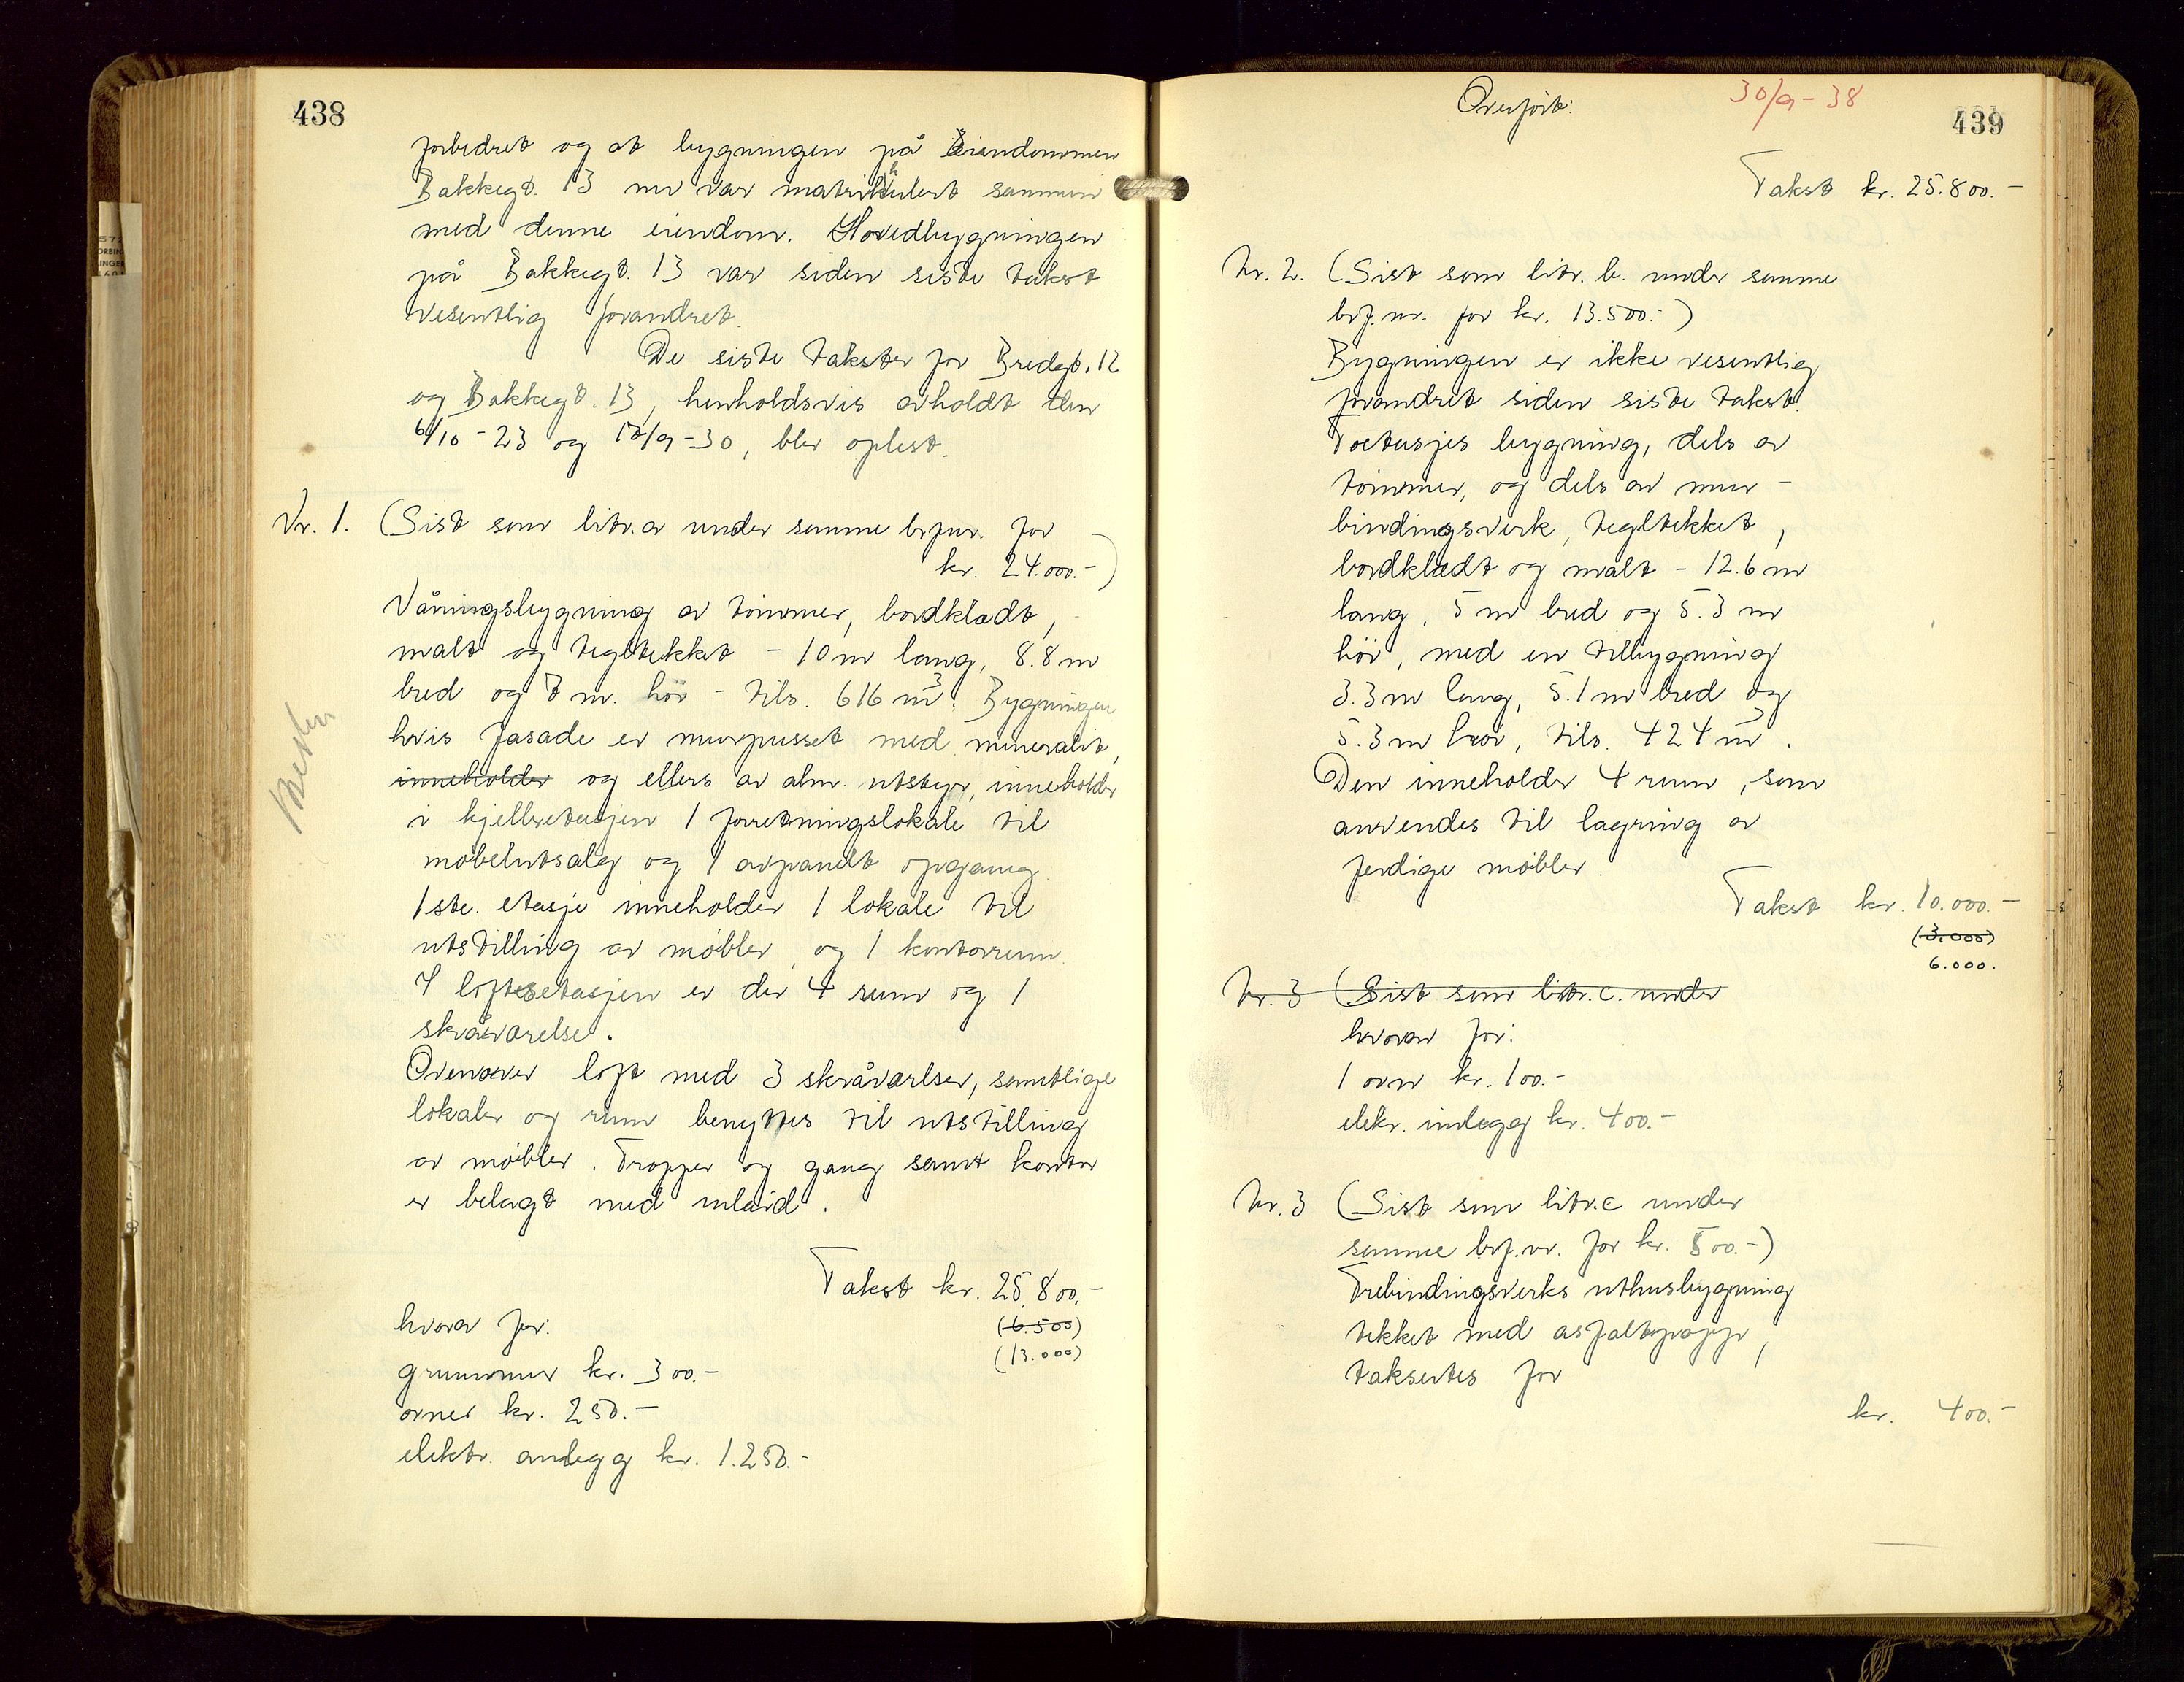 438
forbedret og at bygningen på Eiendommen
Bakkegt. 13 nu var matrikulert sammen
med denne eiendom. Hovedbygningen
på Bakkegt. 13 var siden siste takst
vesentlig forandret.
De siste takster for Bredegt. 12
og Bakkegt. 13, henholdsvis avholdt den
6/10-23 og /9-30, blev oplest.
Nr. 1. (Sist som litr. a under samme brf.nr. for
kr. 24.000.-)
Våningsbygning av tømmer, bordklædt,
malt og tegltekket - 10 m lang, 8.8 m
bred og 7 m. høi - tils. 616 m³. Bygningen
hvis fasade er murpusset med mineralit,
inneholder og ellers av alm. utstyr, inneholder
i kjelleretasjen 1 forretningslokale til
møbelutsalg og 1 avpanelt opgang.
1ste. etasje inneholder 1 lokale til
utstilling av møbler, og 1 kontorrum.
I loftsetasjen er der 4 rum og 1
skråværelse.
Ovenover loft med 3 skråværelser, samtlige
lokaler og rum benyttes til utstilling
av møbler. Trapper og gang samt kontor
er belagt med inlaid.
Takst kr. 25.800.-
hvorav for:
(6.500)
(13.000)
grunnmur kr. 300.-
ovner kr. 250.-
elektr. anlegg kr. 1.250.-
Overført:
30/9-38
439
Takst kr. 25.800.-
Nr. 2. (Sist som litr. b. under samme
brf.nr. for kr. 13.500.-)
Bygningen er ikke vesentlig
forandret siden siste takst.
Toetasjes bygning, dels av
tømmer, og dels av mur-
bindingsverk, tegltekket,
bordklædt og malt - 12.6 m
lang, 5 m bred og 5.3 m
høi, med en tilbygning
3.3 m lang, 5.1 m bred og
5.3 m høi, tils. 424 m³.
Den inneholder 4 rum, som
anvendes til lagring av
ferdige møbler.
Takst kr. 10.000.-
(3.000)
6.000.
Nr. 3 (Sist som litr. c. under
hvorav for:
1 ovn kr. 100.-
elekr. innlegg kr. 400.-
Nr. 3 (Sist som litr. c under
samme brf.nr. for kr. 500.-)
Trebindingsverks uthusbygning
tekket med asfaltpapp,
takseres for
kr. 400.-